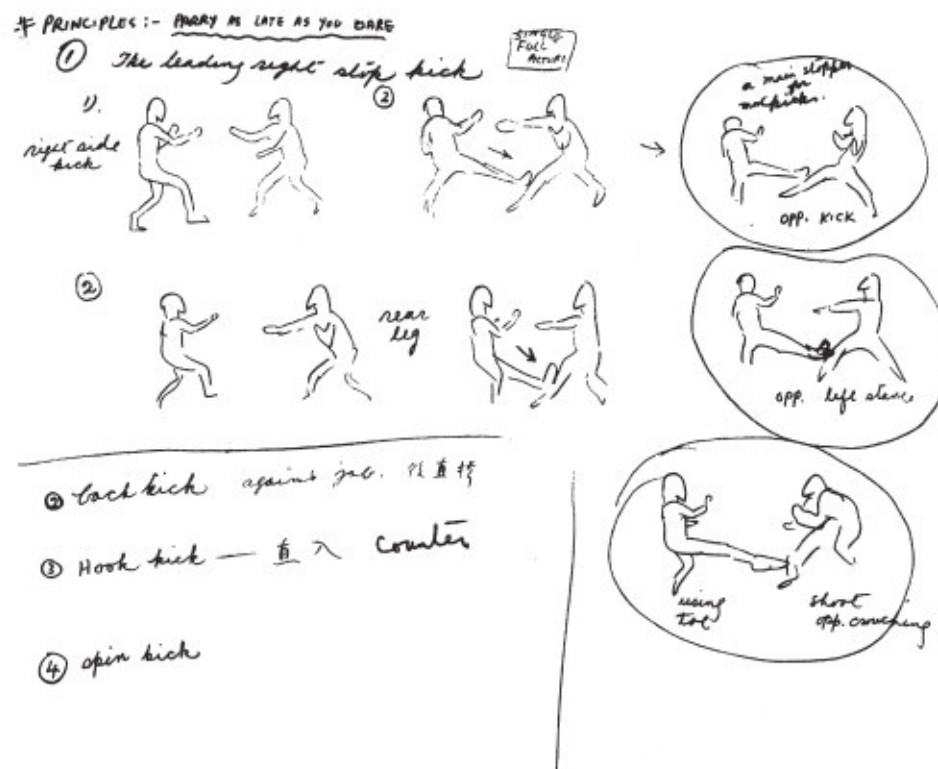 # PRINCIPLES:- PARRY AS LATE AS YOU DARE
① The leading right stop kick
SINGLE
FULL
PICTURE
1).
right side
kick
②
a main stopper
for
opp. kick
②
rear
leg
opp. left stance
② back kick against jab.
③ Hook kick — 直入 counter
using
toe
shoot
opp. crouching
④ spin kick